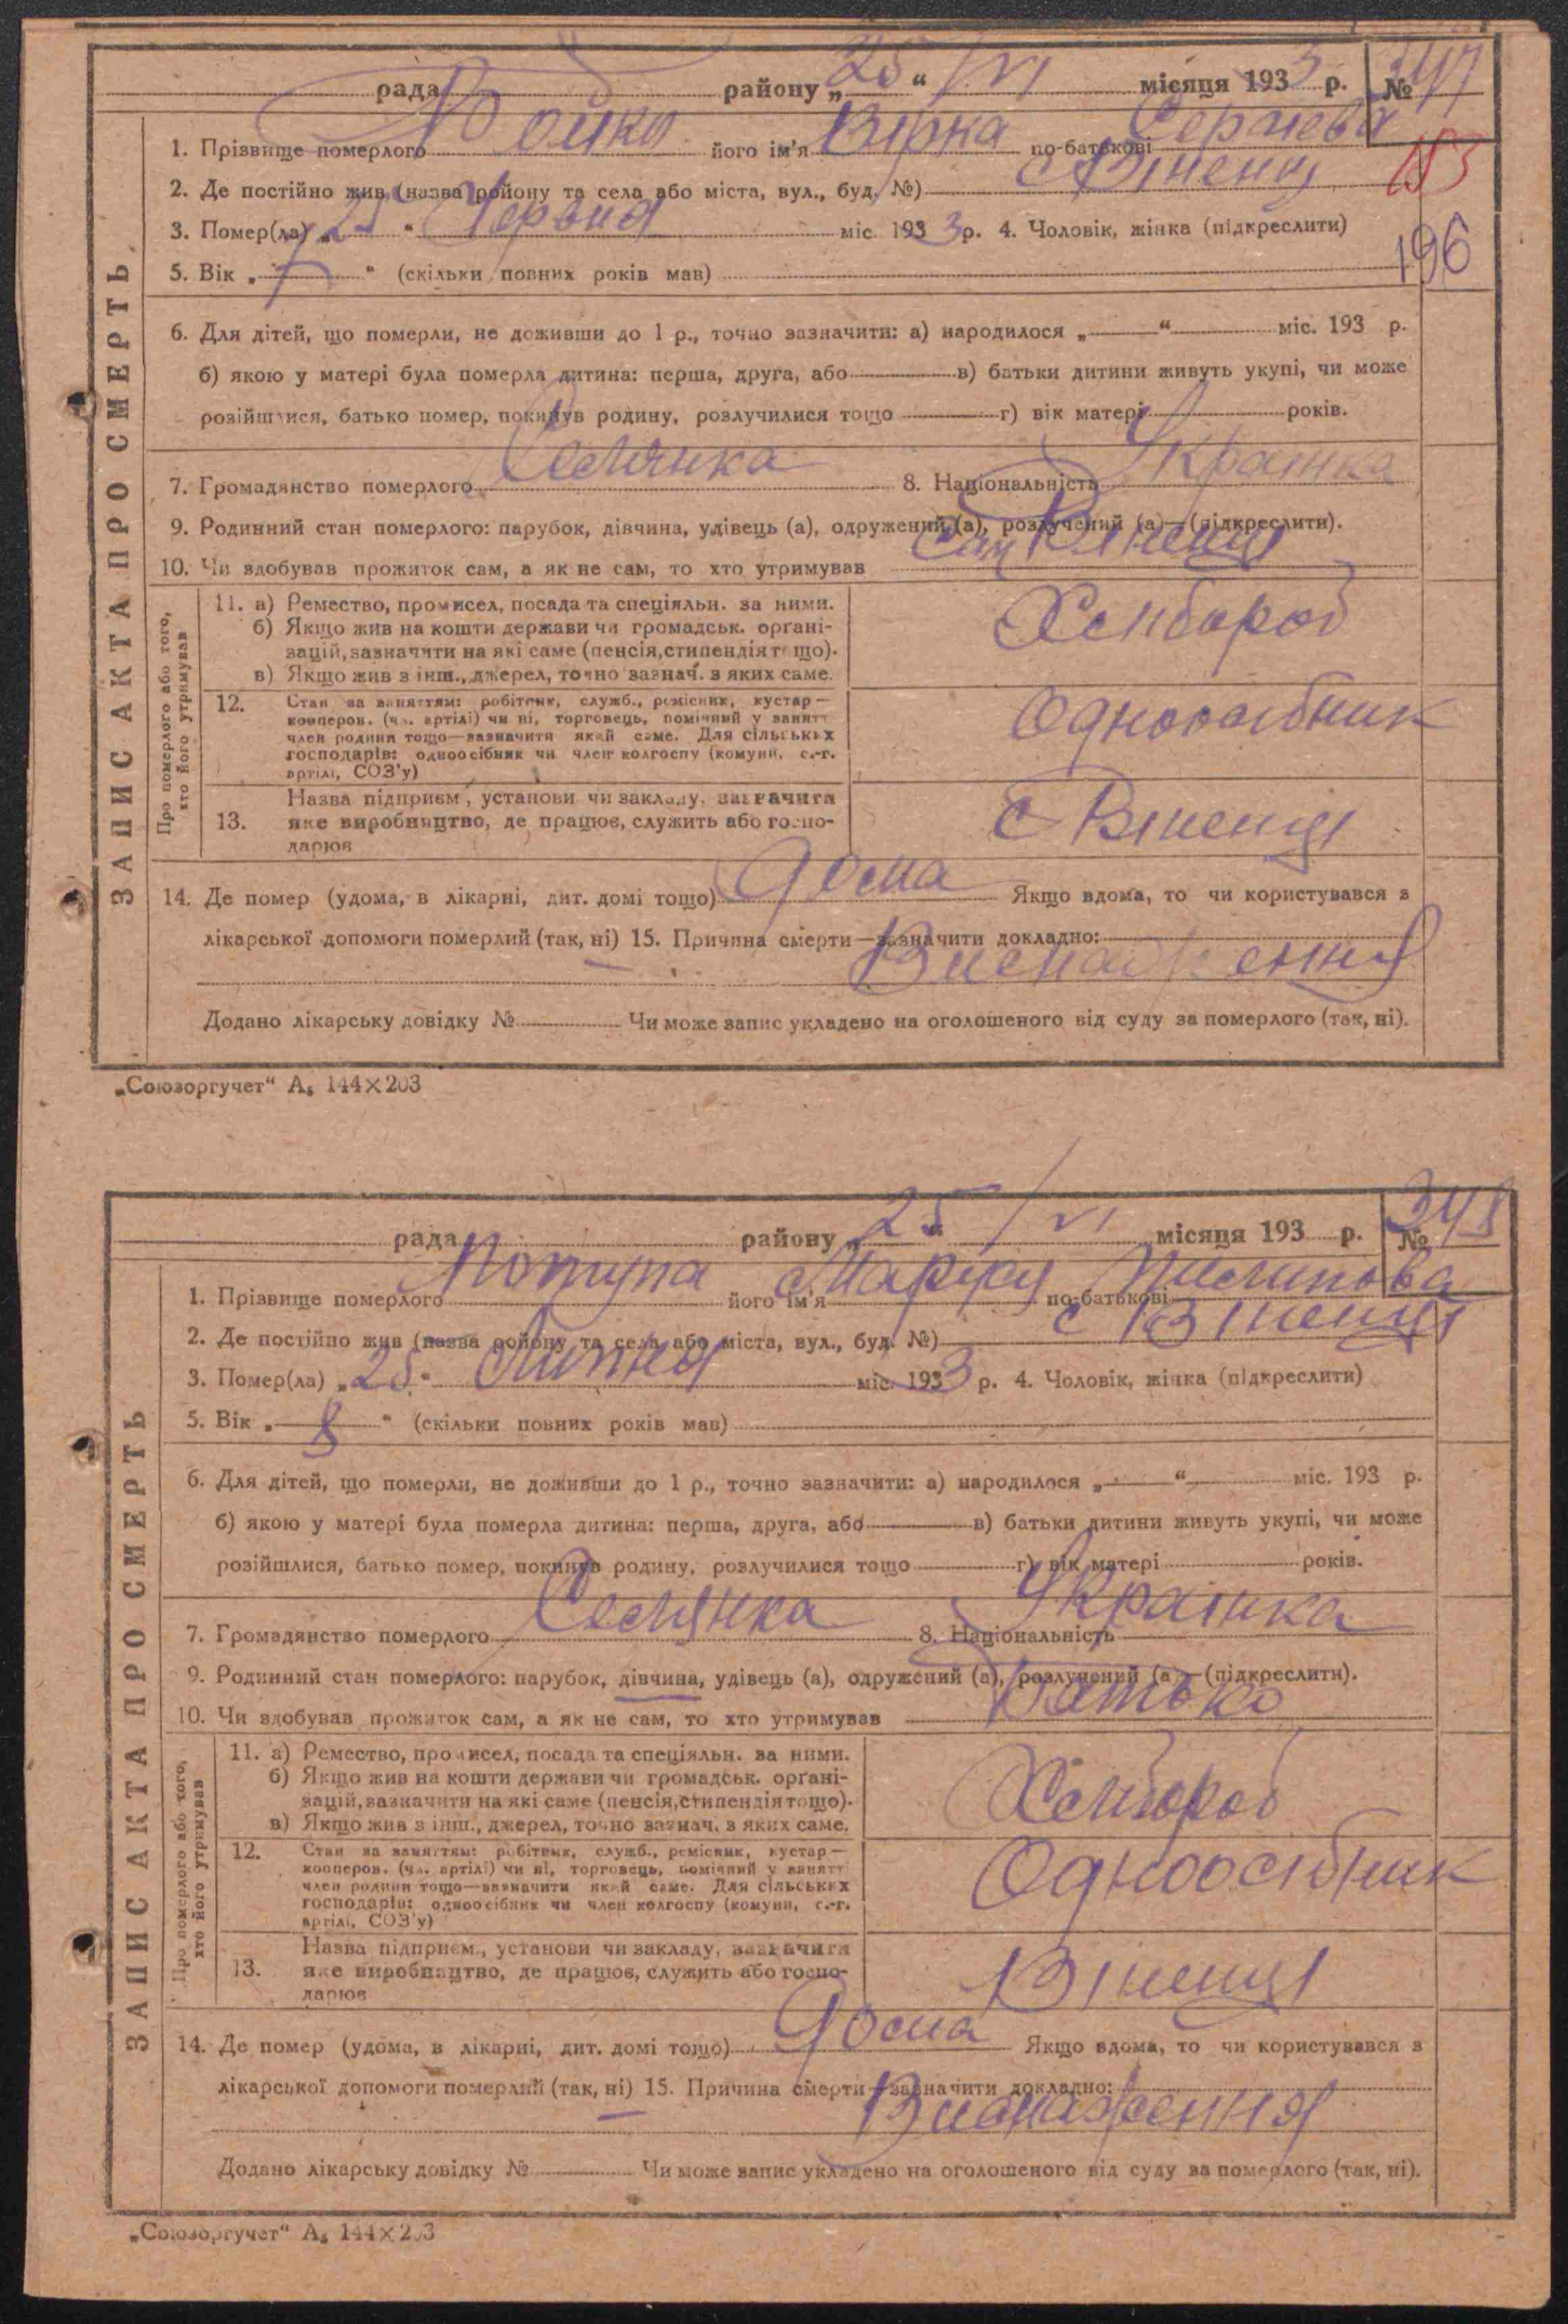 рада району „25“ /VI місяця 1933 р. № 347
1. Прізвище померлого Бойко його ім'я Вірка по-батькові Сергієва
2. Де постійно жив (назва району та села або міста, вул., буд. №) с Віненці
153
3. Помер(ла) „25“ Червня міс 1933 р. 4. Чоловік, жінка (підкреслити)
196
5. Вік „7“ (скільки повних років мав)
6. Для дітей, що померли, не доживши до 1 р., точно зазначити: а) народилося „ “ міс. 193 р.
б) якою у матері була померла дитина: перша, друга, або в) батьки дитини живуть укупі, чи може
розійшлися, батько помер, покинув родину, розлучилися тощо г) вік матері років.
7. Громадянство померлого Селянка 8. Національність Українка
9. Родинний стан померлого: парубок, дівчина, удівець (а), одружений (а), розлучений (а)—(підкреслити).
10. Чи здобував прожиток сам, а як не сам, то хто утримував
ЗАПИС АКТА ПРО СМЕРТЬ
Про померлого або того,
хто його утримував
11. а) Ремество, промисел, посада та спеціяльн. за ними. Хлібороб
б) Якщо жив на кошти держави чи громадськ. орґані-
зацій, зазначити на які саме (пенсія, стипендія тощо).
в) Якщо жив з інш., джерел, точно зазнач. з яких саме.
12. Стан за заняттям: робітник, служб., ремісник, кустар— Одноосібник
кооперов. (чл. артілі) чи ні, торговець, помічний у занятт
член родини тощо—зазначити який саме. Для сільських
господарів: одноосібник чи член колгоспу (комуни, с.-г.
артілі, СОЗ'у)
13. Назва підприєм., установи чи закладу, зазначити
яке виробництво, де працює, служить або госпо- с Віненці
дарює
14. Де помер (удома, в лікарні, дит. домі тощо) Дома Якщо вдома, то чи користувався з
лікарської допомоги померлий (так, ні) 15. Причина смерти—зазначити докладно:
Виснаження
Додано лікарську довідку № Чи може запис укладено на оголошеного від суду за померлого (так, ні).
„Союзоргучет“ А₅ 144×203
рада району „25“ /VI місяця 193 р. № 348
1. Прізвище померлого Потупа його ім'я Марfу по-батькові Пилипова
2. Де постійно жив (назва району та села або міста, вул., буд. №) с Віненці
3. Помер(ла) „25“ Липня міс. 1933 р. 4. Чоловік, жінка (підкреслити)
5. Вік „8“ (скільки повних років мав)
6. Для дітей, що померли, не доживши до 1 р., точно зазначити: а) народилося „ “ міс. 193 р.
б) якою у матері була померла дитина: перша, друга, або в) батьки дитини живуть укупі, чи може
розійшлися, батько помер, покинув родину, розлучилися тощо г) вік матері років.
7. Громадянство померлого Селянка 8. Національність Українка
9. Родинний стан померлого: парубок, дівчина, удівець (а), одружений (а), розлучений (а)—(підкреслити).
10. Чи здобував прожиток сам, а як не сам, то хто утримував Батько
ЗАПИС АКТА ПРО СМЕРТЬ
Про померлого або того,
хто його утримував
11. а) Ремество, промисел, посада та спеціяльн. за ними.
б) Якщо жив на кошти держави чи громадськ. орґані- Хлібороб
зацій, зазначити на які саме (пенсія, стипендія тощо).
в) Якщо жив з інш., джерел, точно зазнач. з яких саме.
12. Стан за заняттям: робітник, служб., ремісник, кустар— Одноосібник
кооперов. (чл. артілі) чи ні, торговець, помічний у занятт
член родини тощо—зазначити який саме. Для сільських
господарів: одноосібник чи член колгоспу (комуни, с.-г.
артілі, СОЗ'у)
13. Назва підприєм., установи чи закладу, зазначити
яке виробництво, де працює, служить або госпо- Віненці
дарює
14. Де помер (удома, в лікарні, дит. домі тощо) Дома Якщо вдома, то чи користувався з
лікарської допомоги померлий (так, ні) 15. Причина смерти—зазначити докладно:
Виснаження
Додано лікарську довідку № Чи може запис укладено на оголошеного від суду за померлого (так, ні).
„Союзоргучет“ А₅ 144×203